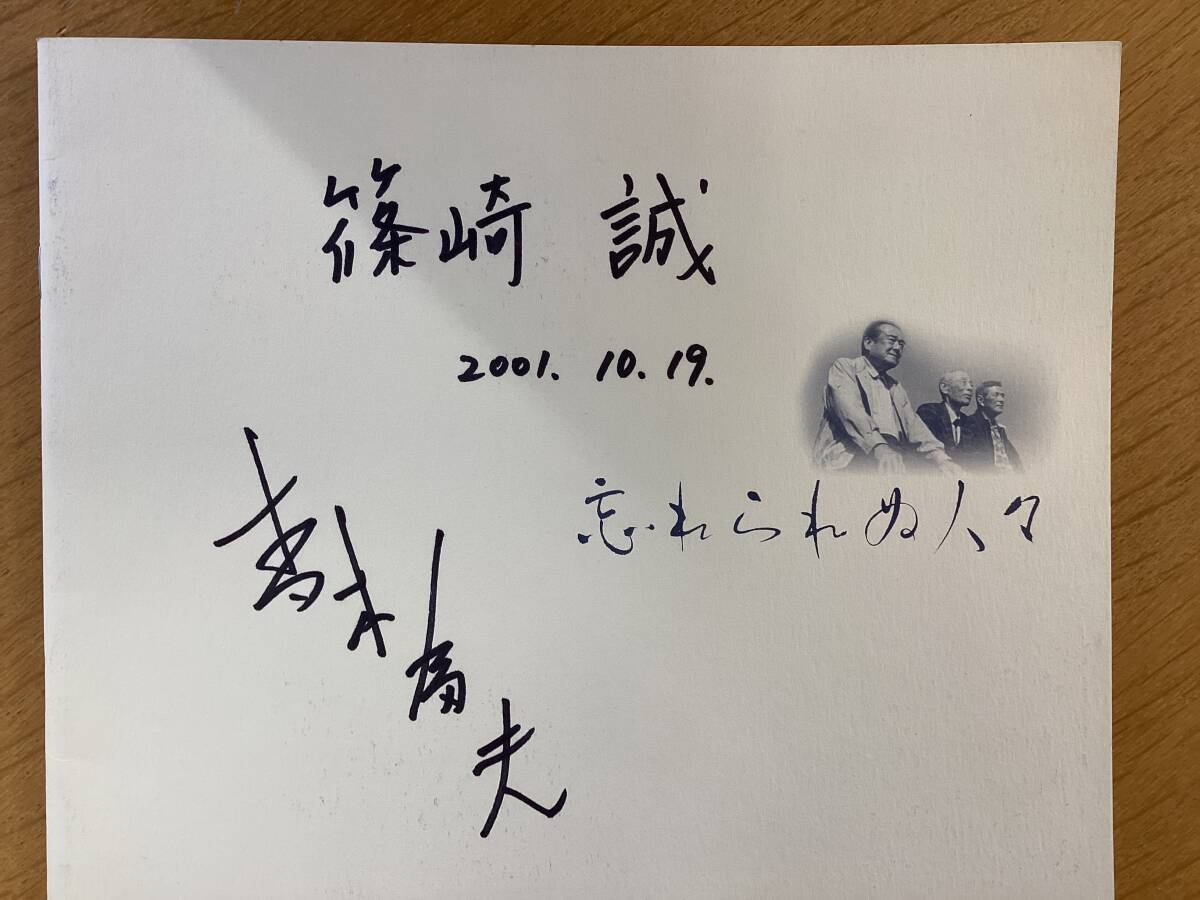 篠崎 誠
2001. 10. 19.
忘れられぬ人々
青木富夫